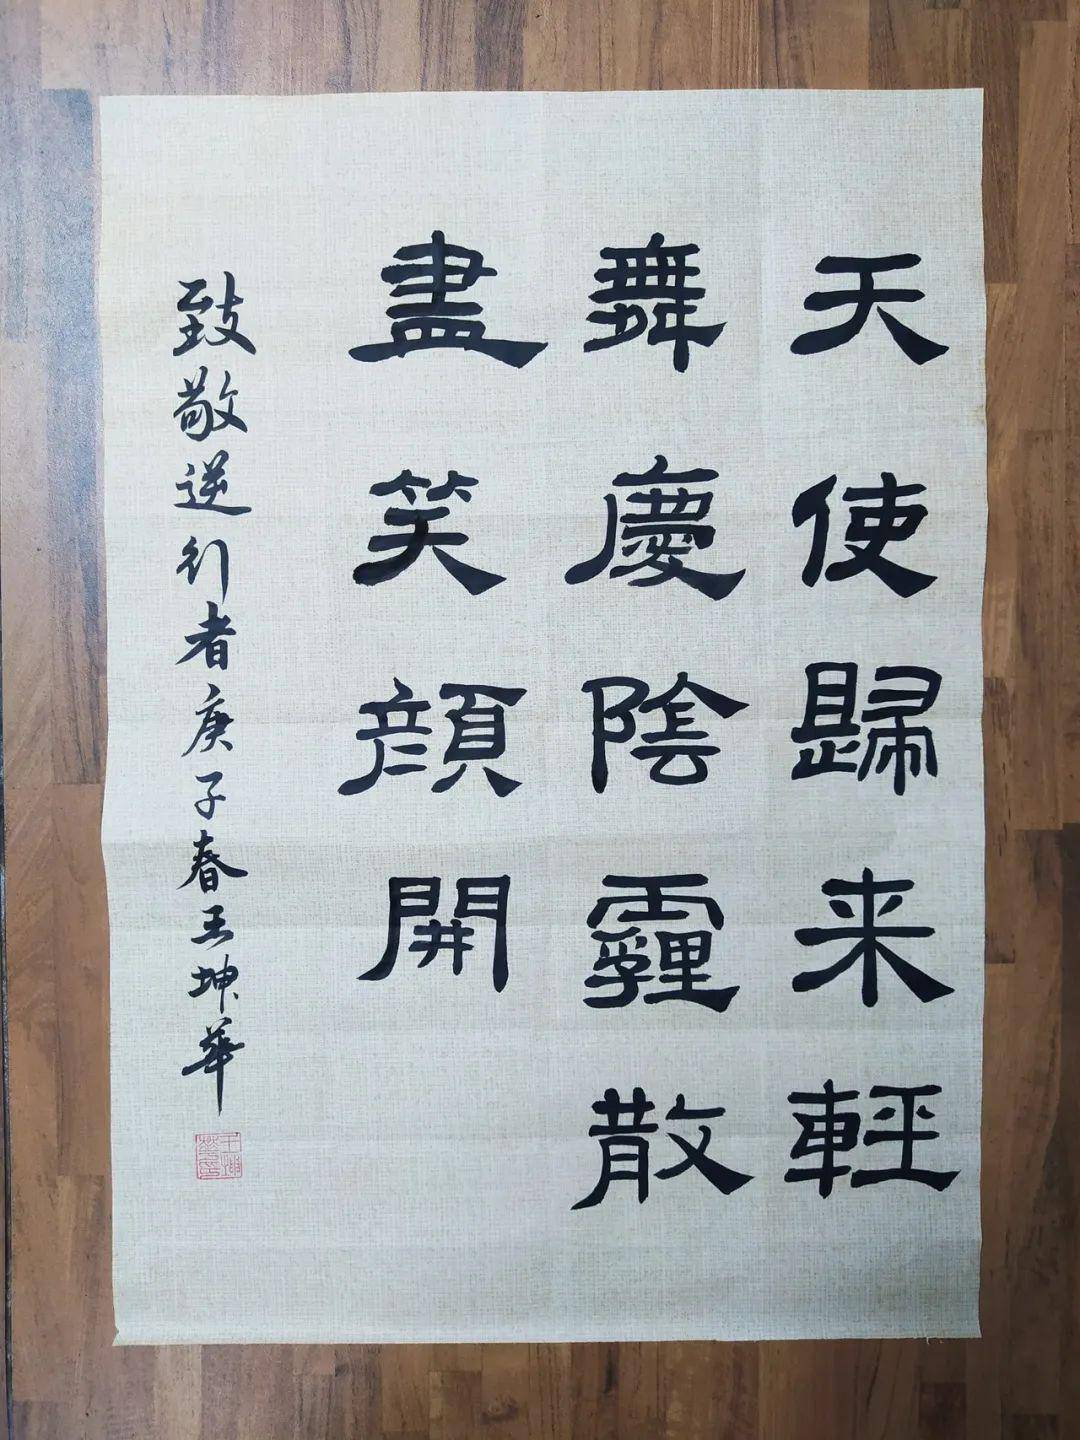 天使歸来輕
舞慶陰霾散
盡笑顏開
致敬逆行者庚子春王坤華
王坤華印